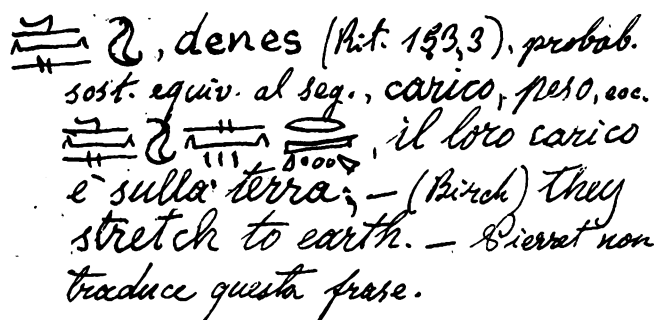 , denes (Rit. 153,3), probab.
sost. equiv. al seg., carico, peso, ecc.
, il loro carico
è sulla terra; — (Birch) they
stretch to earth. — Pierret non
traduce questa frase.